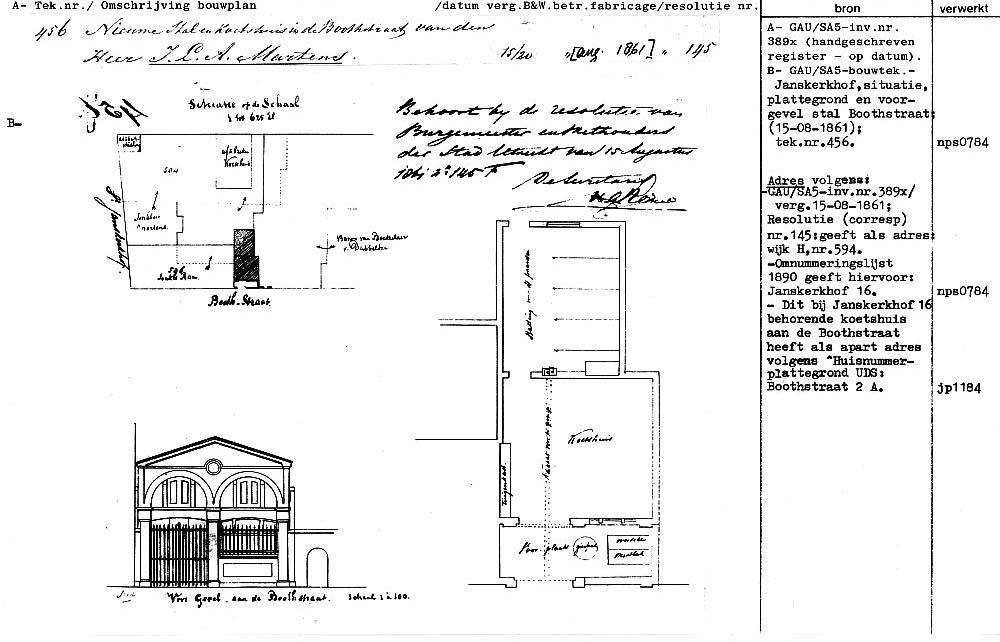 A- Tek.nr./ Omschrijving bouwplan /datum verg.B&W.betr.fabricage/resolutie nr.
bron
verwerkt
456 Nieuwe Stal en koetshuis in de Boothstraat van den
Heer J. C. A. Martens. 15/20 Aug. 1861 145
B-
Situatie op de Schaal
1 tot 625
Behoort bij de resolutie van
Burgemeester en Wethouders
der Stad Utrecht van 15 Augustus
1861 no 145 F
De Secretaris
St. Janskerkhof
Booth-Straat
Baron van Boetzelaer
v. Dubbeldam
Koetshuis
Voor-plaats
Voor Gevel aan de Boothstraat. Schaal 1 à 100.
A- GAU/SA5-inv.nr.
389x (handgeschreven
register - op datum).
B- GAU/SA5-bouwtek.-
Janskerkhof,situatie,
plattegrond en voor-
gevel stal Boothstraat
(15-08-1861);
tek.nr.456. nps0784
Adres volgens:
-GAU/SA5-inv.nr.389x/
verg.15-08-1861;
Resolutie (corresp)
nr.145:geeft als adres:
wijk H,nr.594.
-Omnummeringslijst
1890 geeft hiervoor:
Janskerkhof 16. nps0784
- Dit bij Janskerkhof 16
behorende koetshuis
aan de Boothstraat
heeft als apart adres
volgens "Huisnummer-
plattegrond UDS:
Boothstraat 2 A. jp1184